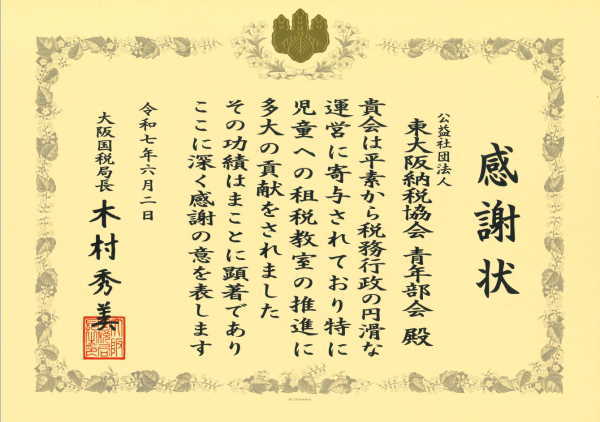 感謝状
公益社団法人
東大阪納税協会 青年部会 殿
貴会は平素から税務行政の円滑な
運営に寄与されており特に
児童への租税教室の推進に
多大の貢献をされました
その功績はまことに顕著であり
ここに深く感謝の意を表します
令和七年六月二日
大阪国税局長 木村秀美